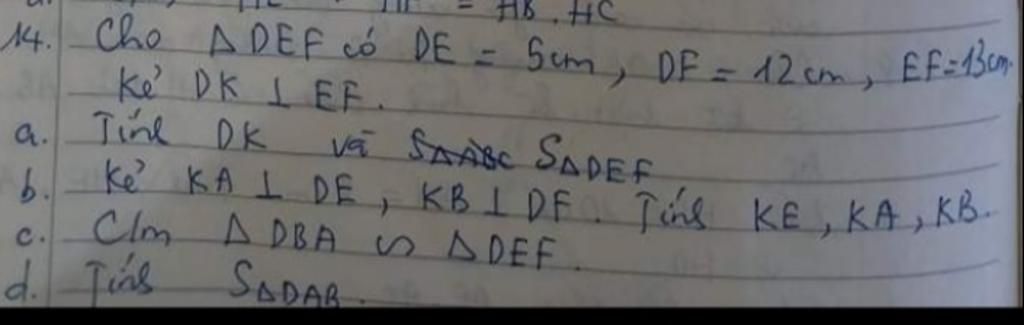 = AB . HC
14. Cho Δ DEF có DE = 5cm, DF = 12cm, EF=13cm.
Kẻ DK ⊥ EF.
a. Tính DK và SΔABC SΔDEF
b. Kẻ KA ⊥ DE, KB ⊥ DF. Tính KE, KA, KB.
c. C/m Δ DBA ∽ Δ DEF.
d. Tính SΔDAB.